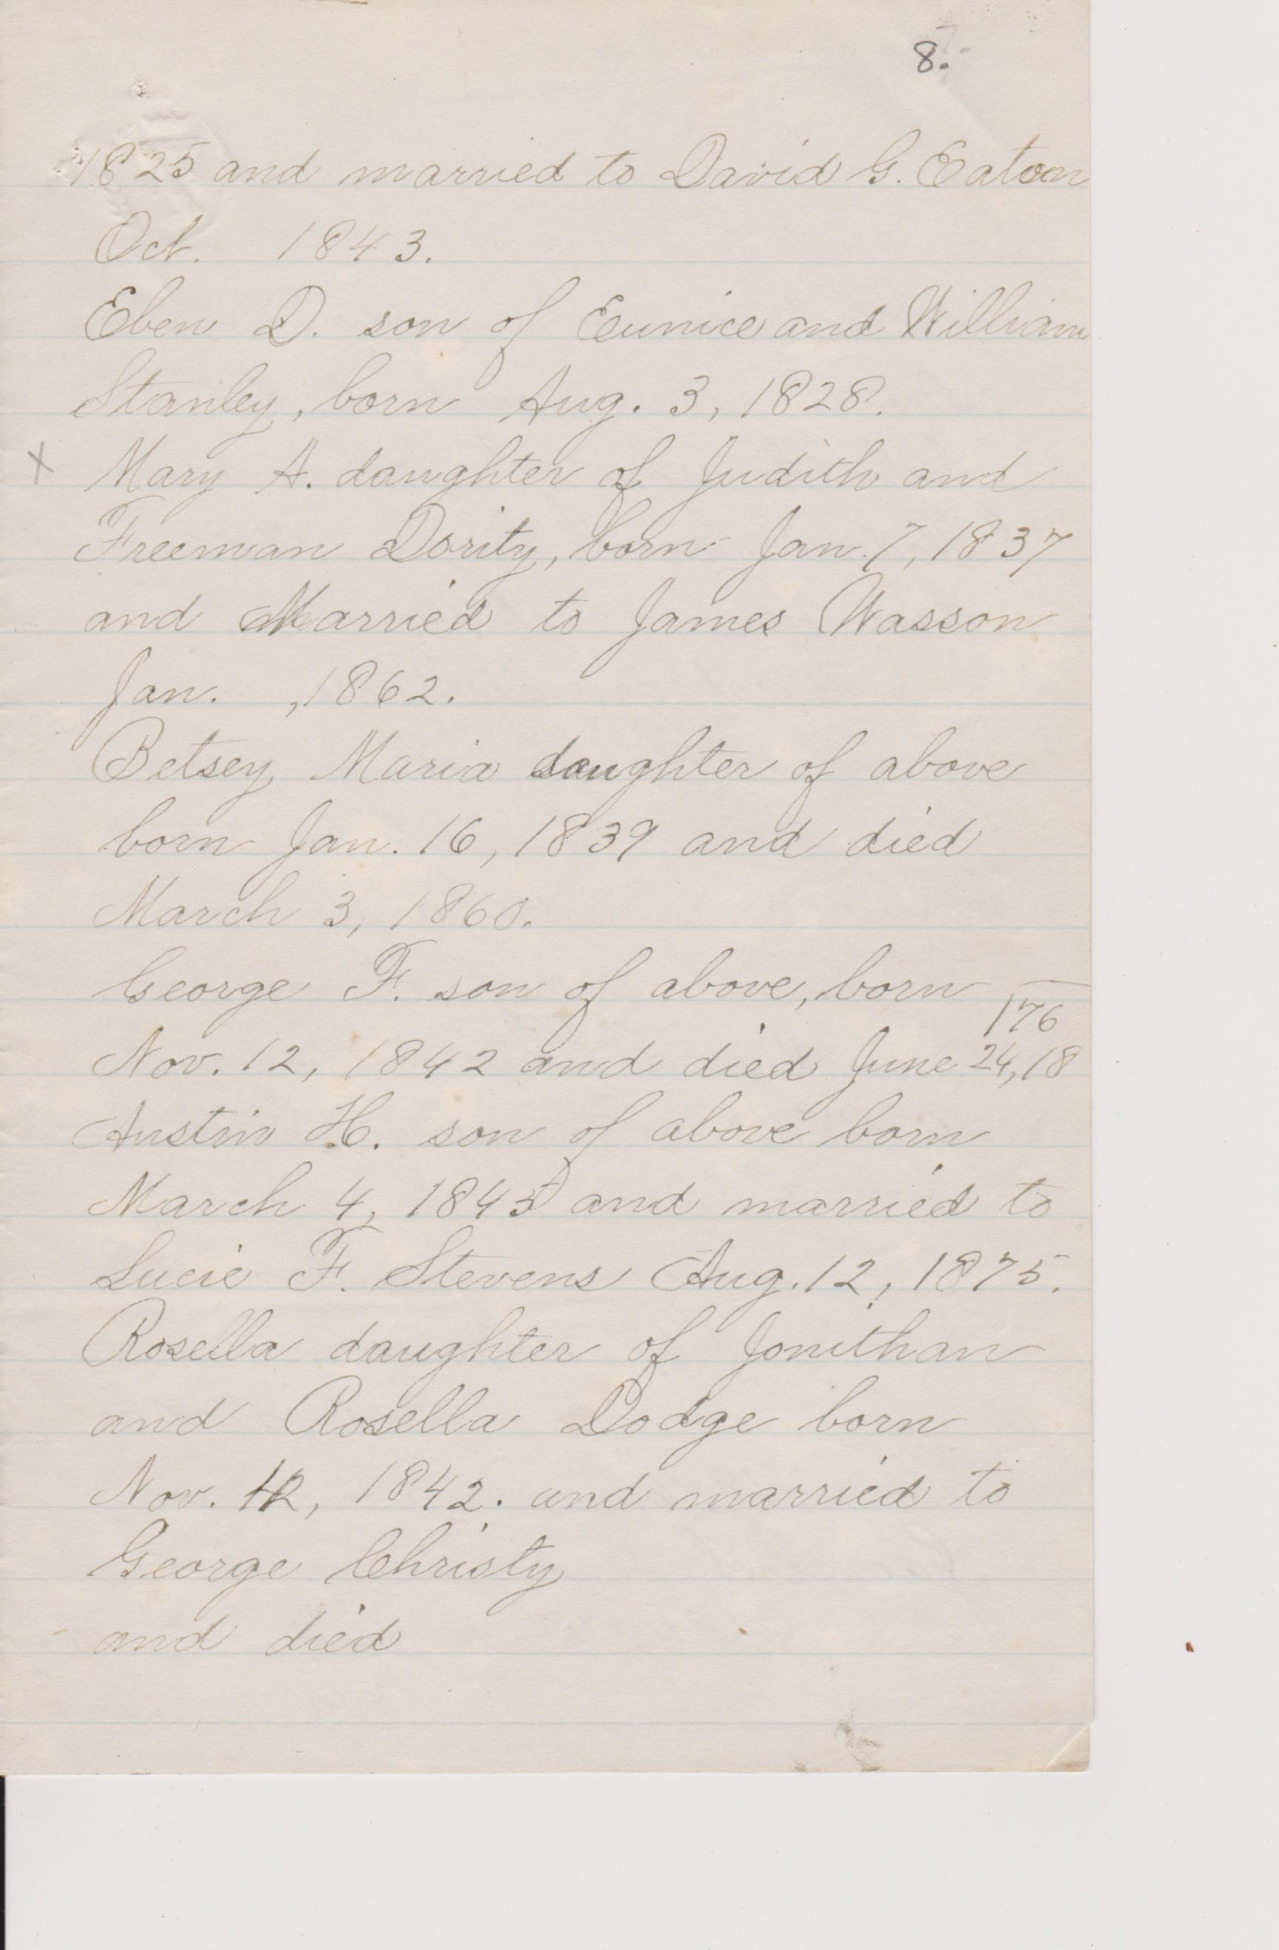 8.
1825 and married to David G. Eaton
Oct. 1843.
Eben D. son of Eunice and William
Stanley, born Aug. 3, 1828.
x Mary A. daughter of Judith and
Freeman Dority, born Jan. 7, 1837
and Married to James Wasson
Jan. , 1862.
Betsey Maria daughter of above
born Jan. 16, 1839 and died
March 3, 1860.
George F. son of above, born
176
Nov. 12, 1842 and died June 24, 18
Austin H. son of above born
March 4, 1845 and married to
Lucie F. Stevens Aug. 12, 1875.
Rosella daughter of Jonithan
and Rosella Dodge born
Nov. 12, 1842. and married to
George Christy
and died